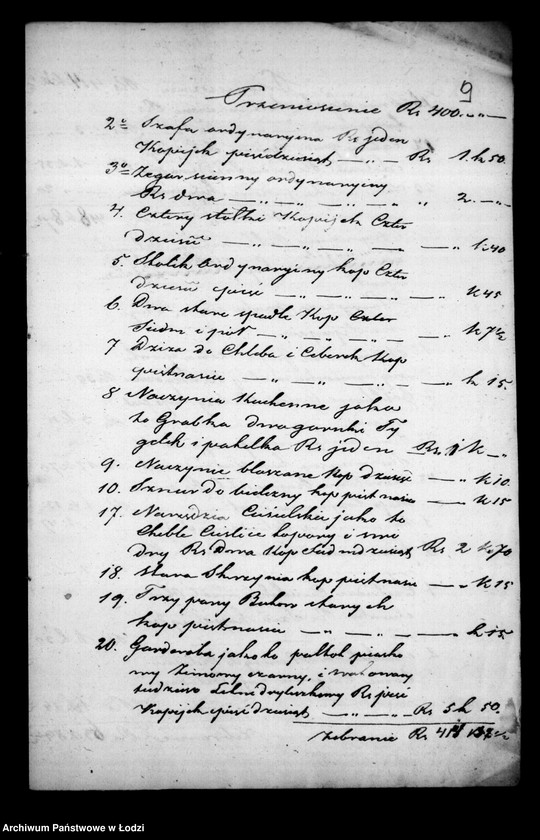 9
Przeniesienie Rs 400 „ —
2o Szafa ordynaryjna Rs jeden
Kopiejek pięśdziesiąt — „ — Rs 1. k 50.
3o Zegar sienny ordynaryjny
Rs dwa — „ — „ — „ — „ 2. — „ —
4. Cztery stołki Kopiejek Czter
dzieści — „ — „ — „ — „ — k 40
5. Stolik Ordynaryjny kop Czter
dzieści pięć — „ — „ — „ — k 45
6. Dwa stare Kop
Siedm i pół — „ — „ — „ — k 7 1/2
7 Dzieża do Chleba i Ceberek Kop
piętnaście — „ — „ — „ — k 15.
8 Naczynia Kuchenne jako
to Grabka dwa garnki Ty
gelek i Rs jeden — Rs. 1 k — „
9. Naczynie blaszane kop dziesięć — „ k 10.
10. Sznur do bielizny kop piętnaście — „ k 15
17. Narzędzia Ciesielskie jako to
Cheble Cieślice i
Rs Dwa Kop Siedmdziesiąt Rs 2 k 70
18. Stara Skrzynia kop piętnaście — „ k 15
19. Trzy pary Butów starych
kop piętnaście — „ — „ — k 15.
20. Garderoba jako to paltot
wy zimowy czarny, i
Rs pięć
Kopiejek pięśdziesiąt — „ — „ — Rs 5 k 50.
Zebranie Rs
Archiwum Państwowe w Łodzi